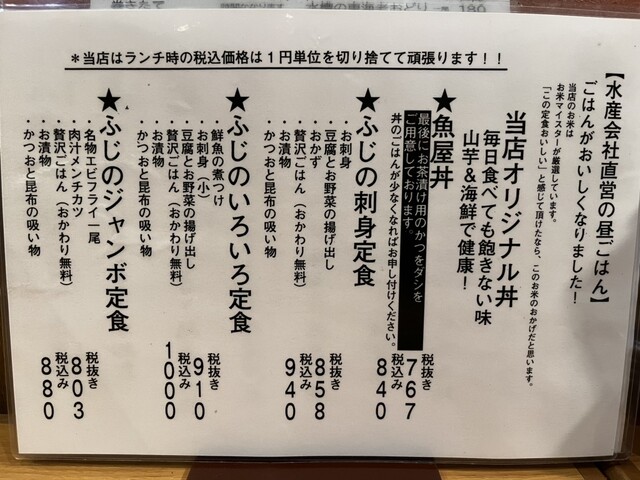 巻きたて
水槽の東海老おどり 一尾 180
＊当店はランチ時の税込価格は１円単位を切り捨てて頑張ります！！
【水産会社直営の昼ごはん】
ごはんがおいしくなりました！
当店のお米は
お米マイスターが厳選しています。
「この定食おいしい」と感じて頂けたなら、このお米のおかげだと思います。
当店オリジナル丼
毎日食べても飽きない味
山芋＆海鮮で健康！
★魚屋丼
税抜き 767
税込み 840
最後にお茶漬け用のかつをダシを
ご用意しております。
丼のごはんが少なくなればお申し付けください。
★ふじの刺身定食
税抜き 858
税込み 940
・お刺身
・豆腐とお野菜の揚げ出し
・おかず
・贅沢ごはん（おかわり無料）
・お漬物
・かつおと昆布の吸い物
★ふじのいろいろ定食
税抜き 910
税込み 1000
・鮮魚の煮つけ
・お刺身（小）
・豆腐とお野菜の揚げ出し
・贅沢ごはん（おかわり無料）
・お漬物
・かつおと昆布の吸い物
★ふじのジャンボ定食
税抜き 803
税込み 880
・名物エビフライ一尾
・肉汁メンチカツ
・贅沢ごはん（おかわり無料）
・お漬物
・かつおと昆布の吸い物